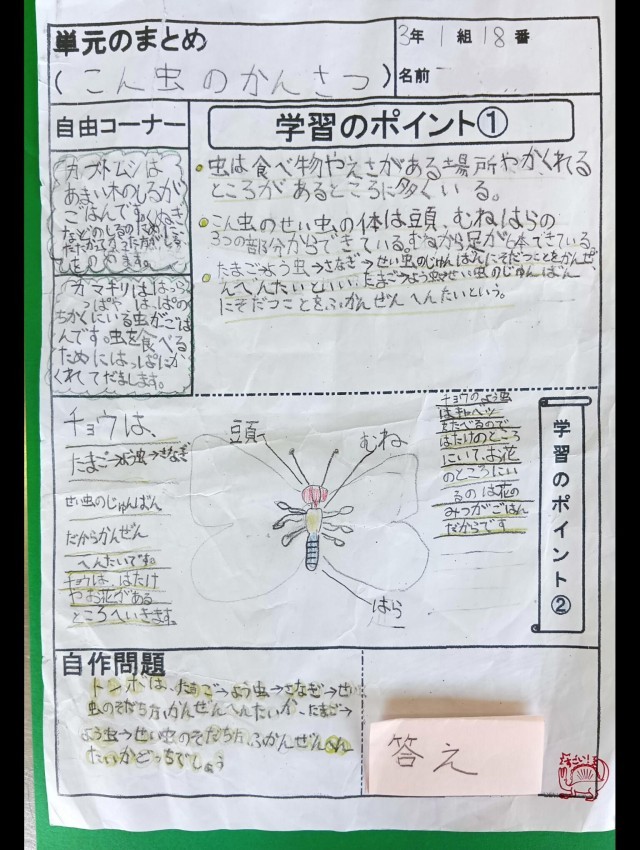 単元のまとめ
3年 1組 18番
(こん虫のかんさつ)
名前
自由コーナー
カブトムシは
あまい木のしるが
ごはんです。くぬぎ
などのしるのために
カマキリははらっ
っぱや、はっぱの
ちかくにいる虫がごは
んです。虫を食べる
ためにはっぱにか
くれてだまします。
学習のポイント①
虫は食べ物やえさがある場所やかくれる
ところがあるところに多くいる。
こん虫のせい虫の体は頭、むねはらの
3つの部分からできている。むねから足が6本できている。
たまご→よう虫→さなぎ→せい虫のじゅんばんにそだつことをかんぜ
んへんたいといい、たまご→よう虫→せい虫のじゅんばん
にそだつことをふかんぜんへんたいという。
チョウは、
たまご→よう虫→さなぎ
せい虫のじゅんばん
だからかんぜん
へんたいです。
チョウは、はたけ
やお花がある
ところへいきます。
頭
むね
はら
チョウのよう虫
はキャベツ
をたべるので
はたけのところ
にいて、お花
のところにい
るのは花の
みつがごはん
だからです
学習のポイント②
自作問題
トンボは、たまご→よう虫→さなぎ→せい
虫のそだち方かんぜんへんたいか、たまご→
よう虫→せい虫のそだち方ふかんぜんへん
たいかどっちでしょう
答え